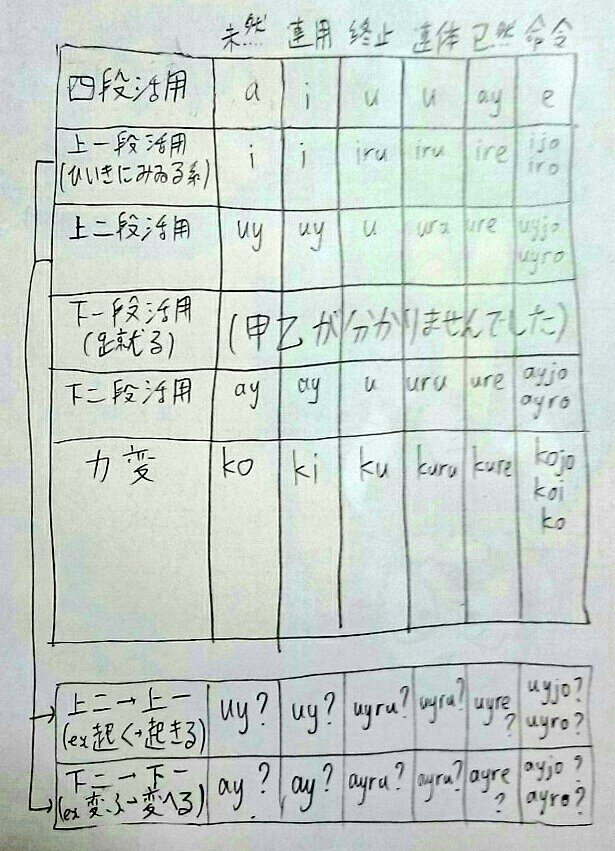 未然 連用 終止 連体 已然 命令
四段活用 a i u u ay e
上一段活用 i i iru iru ire ijo
(ひいきにみゐる系) iro
上二段活用 uy uy u uru ure uyjo
uyro
下一段活用 (甲乙が分かりませんでした)
下二段活用 ay ay u uru ure ayjo
ayro
カ変 ko ki ku kuru kure kojo
koi
ko
上二→上一 uy? uy? uyru? uyru? uyre? uyjo?
(ex起く→起きる) uyro?
下二→下一 ay? ay? ayru? ayru? ayre? ayjo?
(ex変ふ→変へる) ayro?